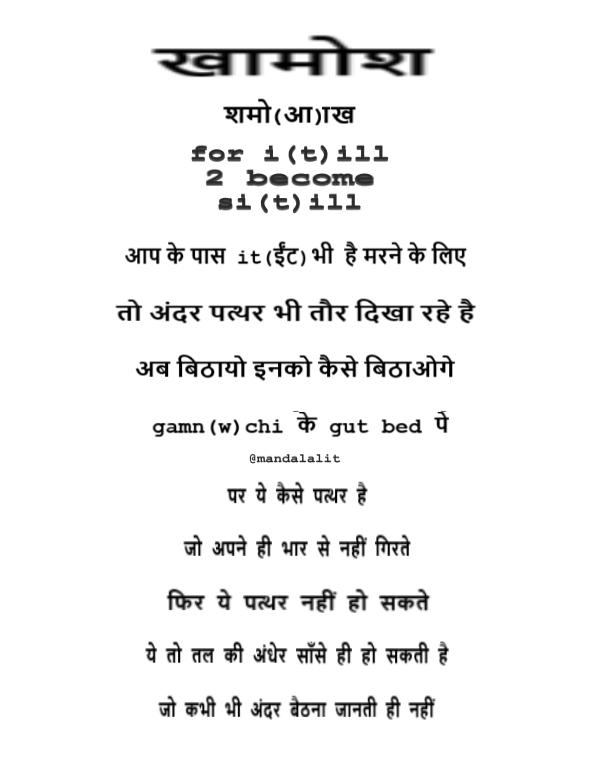 खामोश
शमो(आ)ाख
for i(t)ill
2 become
si(t)ill
आप के पास it(ईंट) भी है मरने के लिए
तो अंदर पत्थर भी तौर दिखा रहे है
अब बिठायो इनको कैसे बिठाओगे
gamn(w)chi के gut bed पे
@mandalalit
पर ये कैसे पत्थर है
जो अपने ही भार से नहीं गिरते
फिर ये पत्थर नहीं हो सकते
ये तो तल की अंधेर साँसे ही हो सकती है
जो कभी भी अंदर बैठना जानती ही नहीं